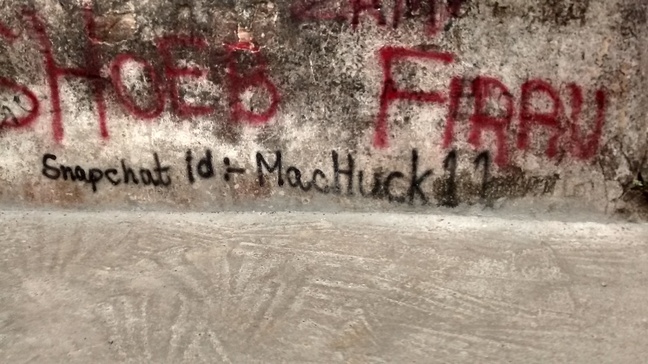 SHOEB FIRAN
Snapchat id:- MacHuck11